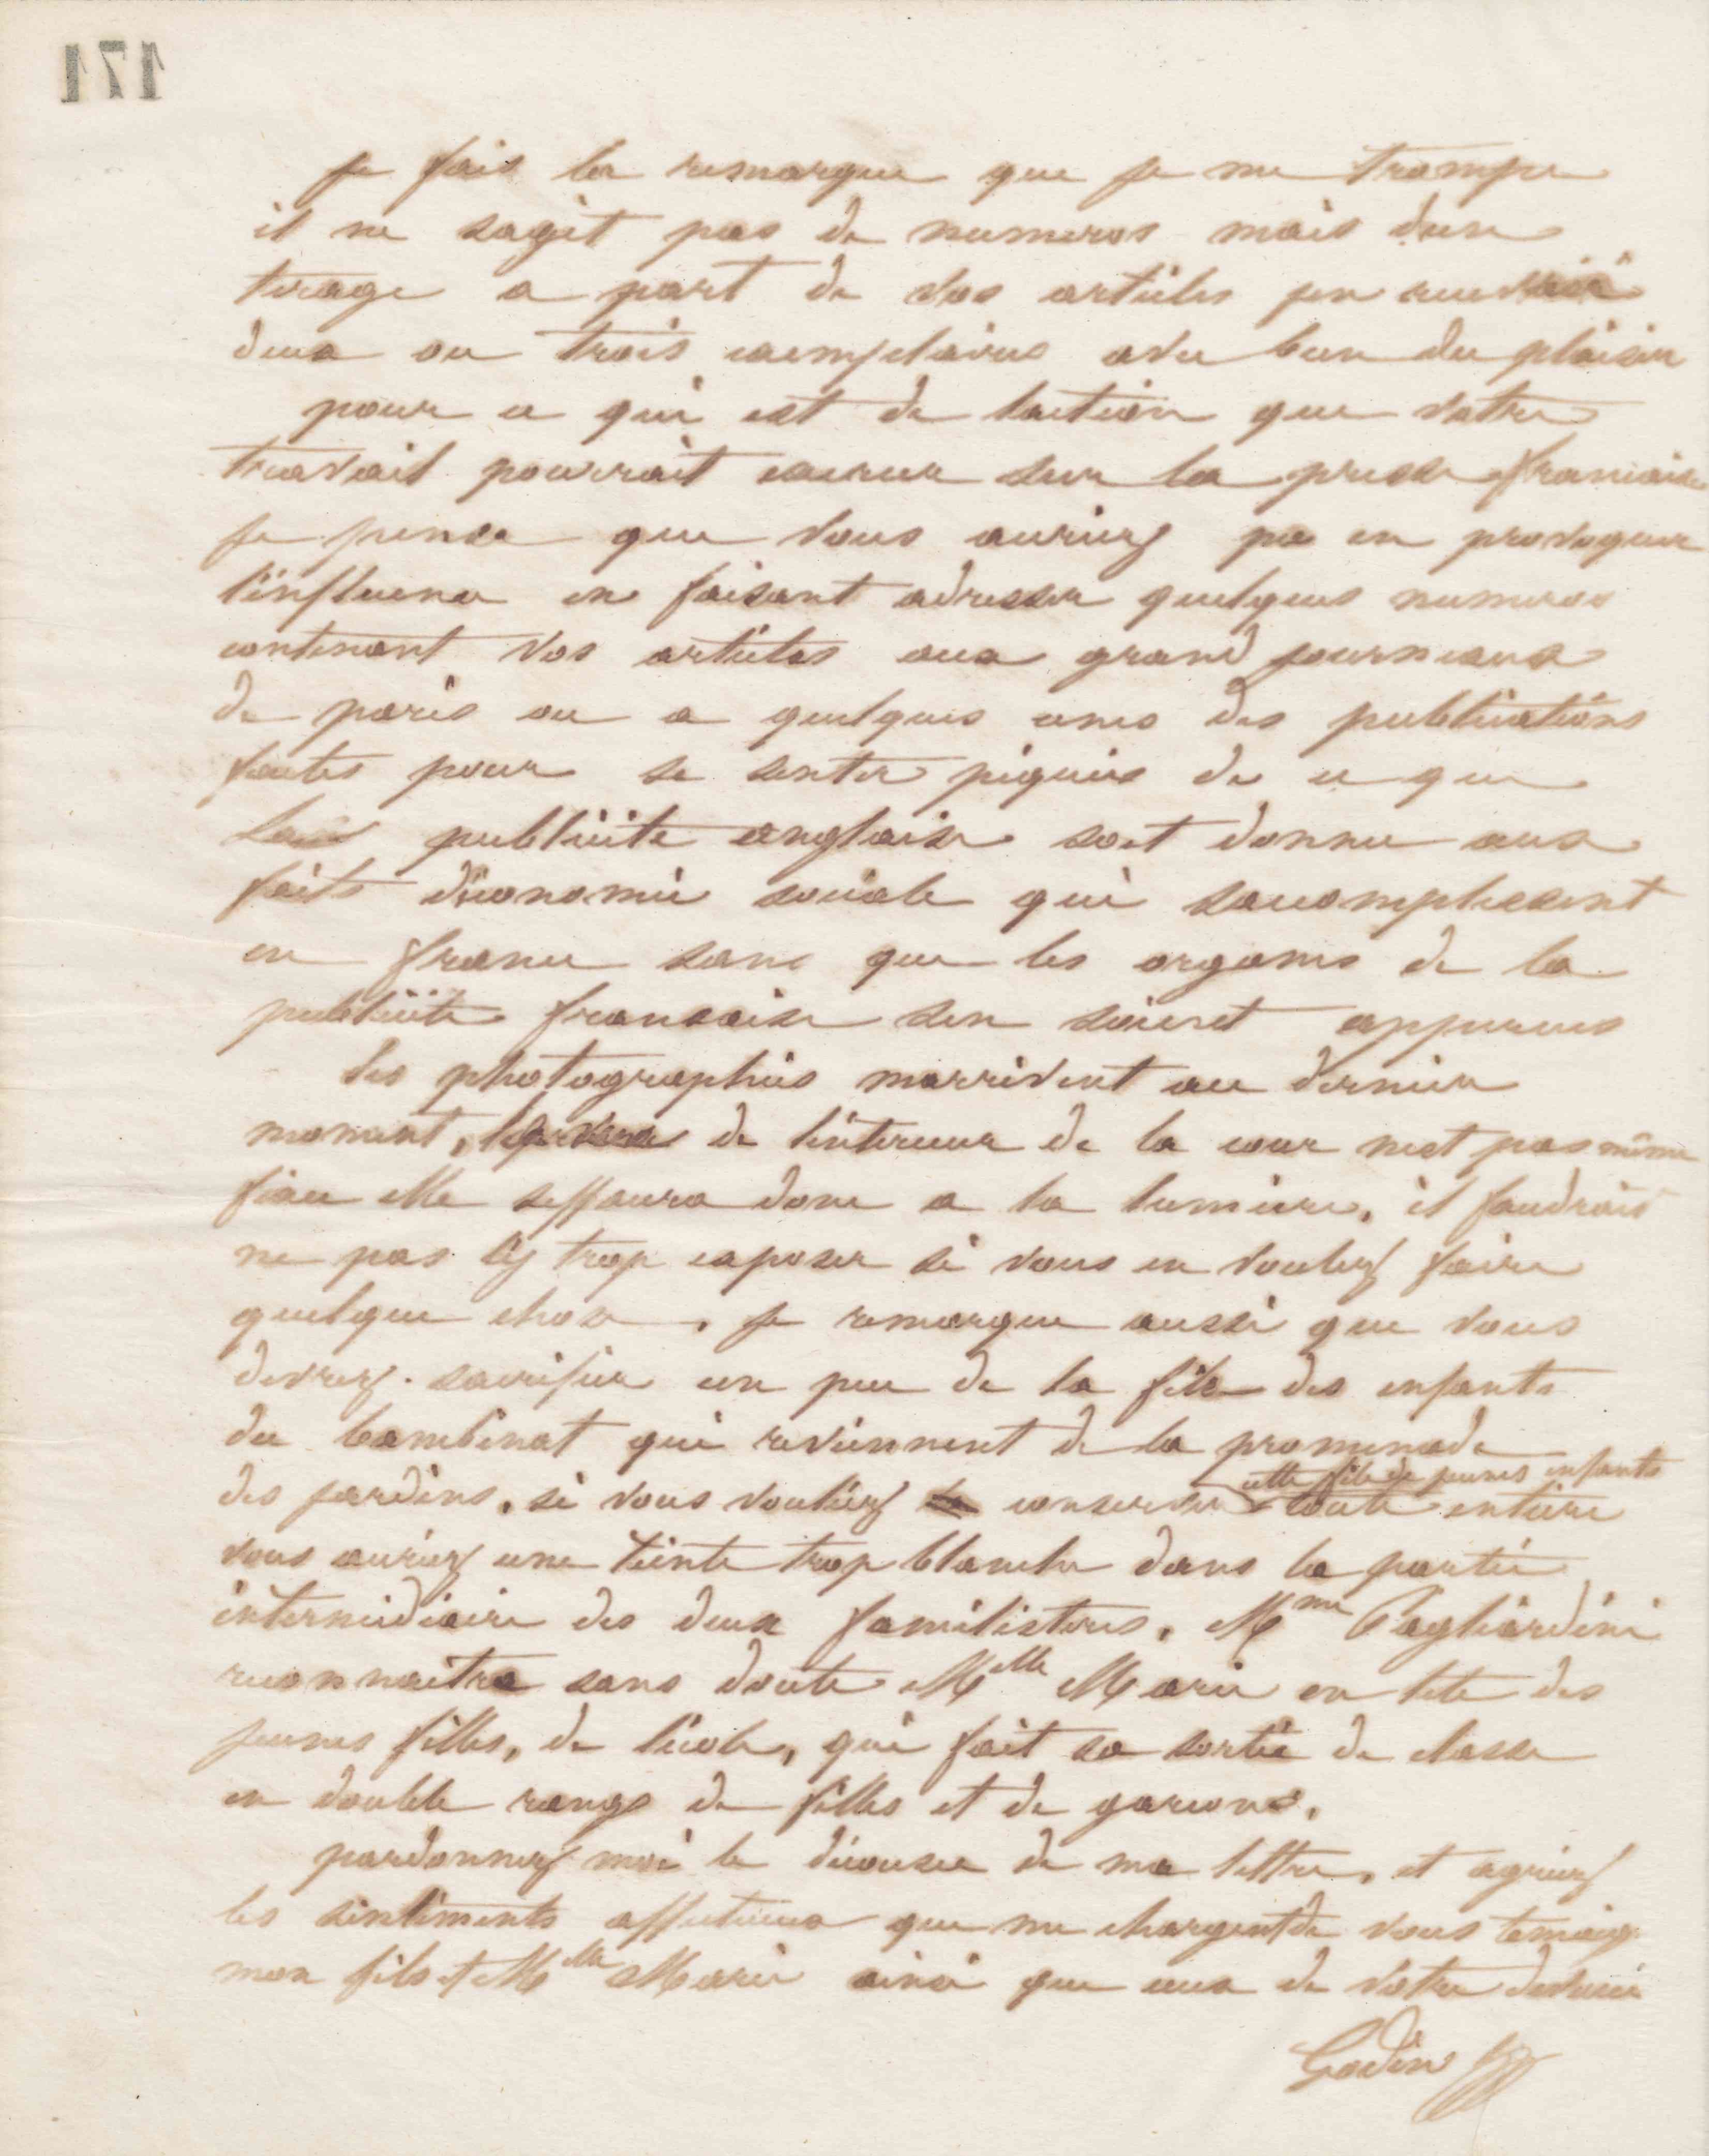 171
je fais la remarque que je me trompe
il ne sagit pas de numeros mais dun
tirage a part de vos articles jen recevrai
deux ou trois exemplaires avec bien du plaisir
pour ce qui est de laction que votre
travail pourrait exercer sur la presse francaise
je pense que vous auriez pu en provoquer
l'influence en faisant adresser quelques numeros
contenant vos articles aux grand journeaux
de paris ou a quelques unes des publications
faites pour se sentir piquées de ce que
publicité anglaise soit donnee aux
faits déconomie sociale qui saccomplissent
en france sans que les organes de la
publicité francaise sen soient appercues
les photographies marrivent au dernier
moment, de linterieur de la cour nest pas même
fixee elle seffacera donc a la lumiere, il faudrait
ne pas trop exposer si vous en voulez faire
quelque chose. je remarque aussi que vous
devrez sacrifier un peu de la file des enfants
du bambinat qui reviennent de la promenade
des jardins. si vous vouliez conserver cette file de jeunes enfants toute entiere
vous auriez une teinte trop blanche dans la partie
intermédiaire des deux familisteres. Mme Pagliardini
reconnaitra sans doute Melle Marie en tete des
jeunes filles, de lécole, qui fait sa sortie de classe
en double rangs de filles et de garcons.
pardonnez moi le décousu de ma lettre, et agréez
les sentiments affectueux que me chargent de vous temoig
mon fils et Melle Marie ainsi que ceux de votre devoué
Godin